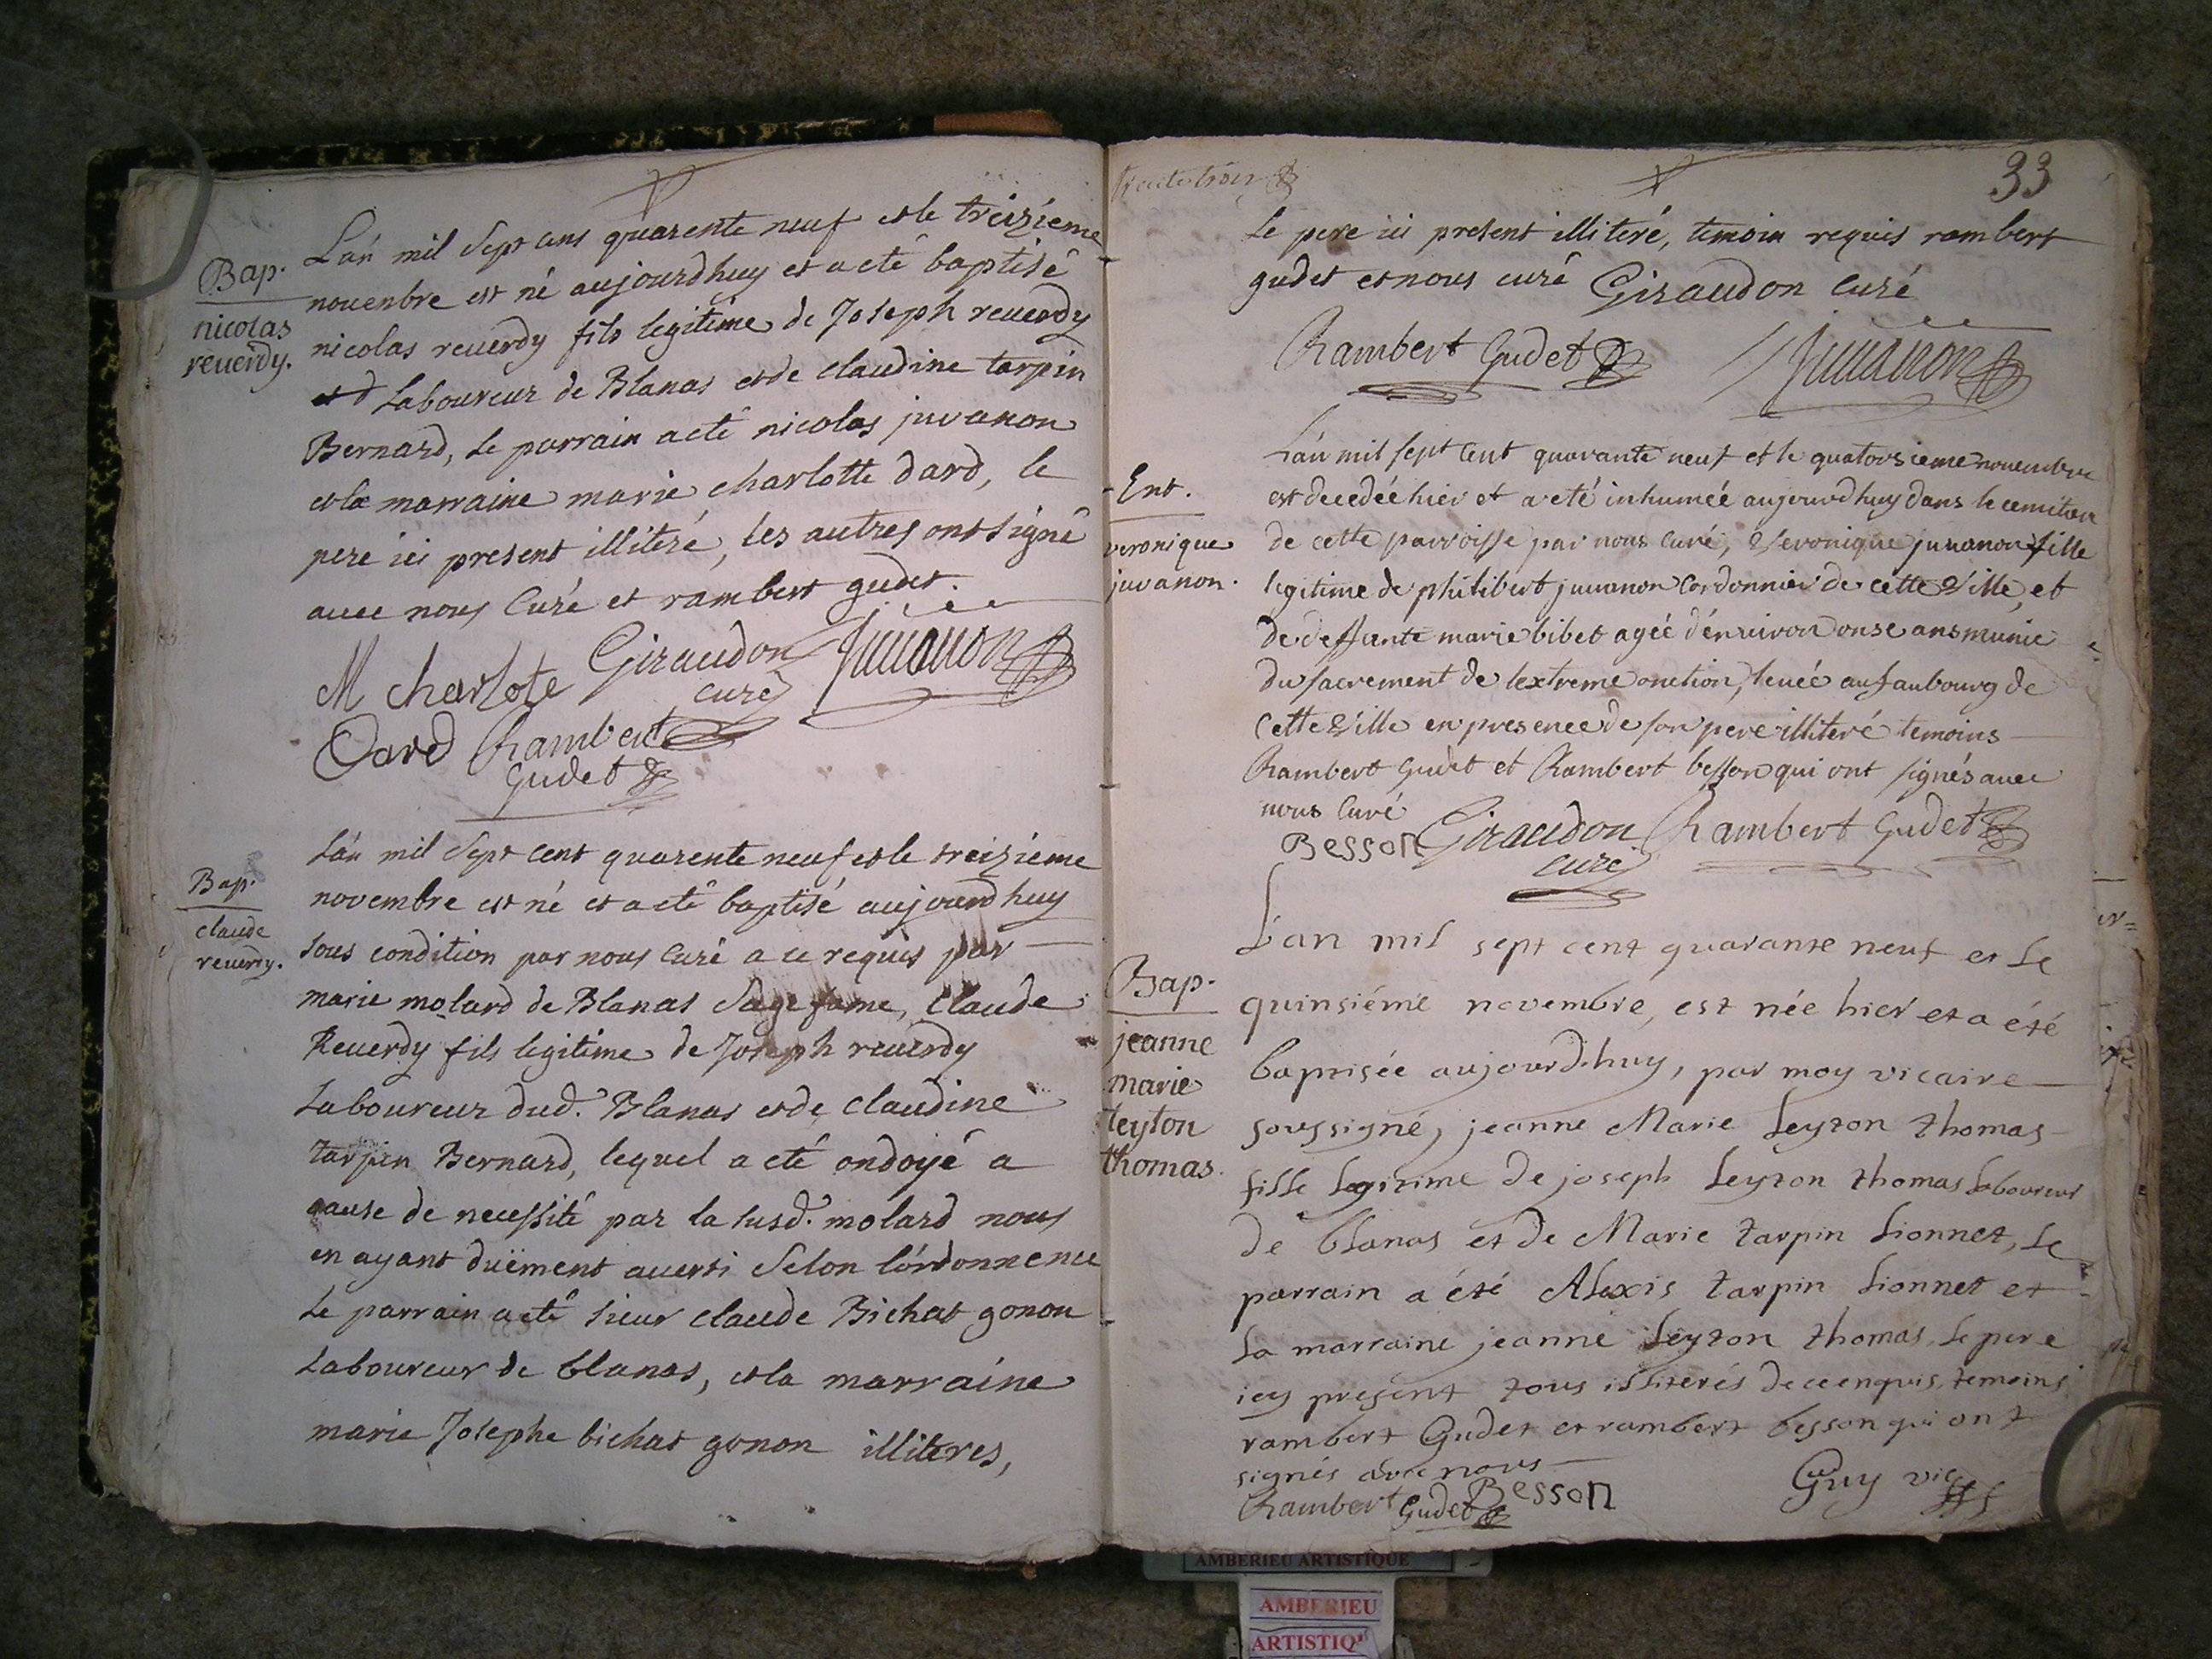 Bap.
nicolas
reuerdy.
L'an mil Sept cens quarente neuf et le treizieme
nouenbre est né aujourdhuy et a eté baptisé
nicolas reuerdy fils legitime de Joseph reuerdy
Laboureur de Blanas et de claudine tarpin
Bernard, le parrain a eté nicolas juvanon
et la marraine marie charlotte dard, le
pere ici present illiteré, les autres ont signé
auec nous Curé et rambert gudet.
M charlote Giraudon Juuanon
curé
Dard Rambert
Gudet
Bap.
claude
reuerdy.
L'an mil Sept cent quarente neuf et le treizieme
novembre est né et a eté baptisé aujourdhuy
sous condition par nous Curé a ce requis par
marie molard de Blanas Sage fame, Claude
Reuerdy fils legitime de Joseph reuerdy
Laboureur dud. Blanas et de claudine
tarpin Bernard, lequel a eté ondoyé a
cause de necessité par la susd. molard nous
en ayant duëment auerti Selon l'ordonnence
Le parrain a eté sieur claude Bichat gonon
Laboureur de blanas, et la marraine
marie Josephe bichat gonon illiteres,
trente trois
33
le pere ici present illiteré, temoin requis rambert
gudet et nous curé Giraudon Curé
Rambert Gudet Juuanon
Ent.
veronique
juvanon.
L'an mil sept cent quarante neuf et le quatorsieme nouembre
est decedéé hier et a eté inhuméé aujourdhuy dans le cemitiere
de cette parroisse par nous curé, Veronique juuanon fille
legitime de philibert juuanon Cordonnier de cette Ville, et
de deffunte marie bibet agéé d'enuiron onse ans munie
du sacrement de lextreme onction, leuéé au faubourg de
Cette Ville en presence de son pere illiteré temoins
Rambert Gudet et Rambert besson qui ont signés auec
nous Curé
Besson Giraudon Rambert Gudet
curé
Bap.
jeanne
marie
leyton
thomas.
L'an mil sept cent quarante neuf et le
quinsiéme novembre, est née hier et a été
baptisée aujourd'huy, par moy vicaire
soussigné, jeanne Marie Leyton thomas
fille Legitime de joseph Leyton thomas Laboureur
de blanas et de Marie tarpin Lionnet, Le
parrain a été Alexis tarpin Lionnet et
La marraine jeanne Leyton thomas, Le pere
icy present tous illiterés de ce enquis, temoins
rambert Gudet et rambert besson qui ont
signés avec nous
Rambert Gudet Besson Guy vic
AMBERIEU ARTISTIQUE
AMBERIEU
ARTISTIQ